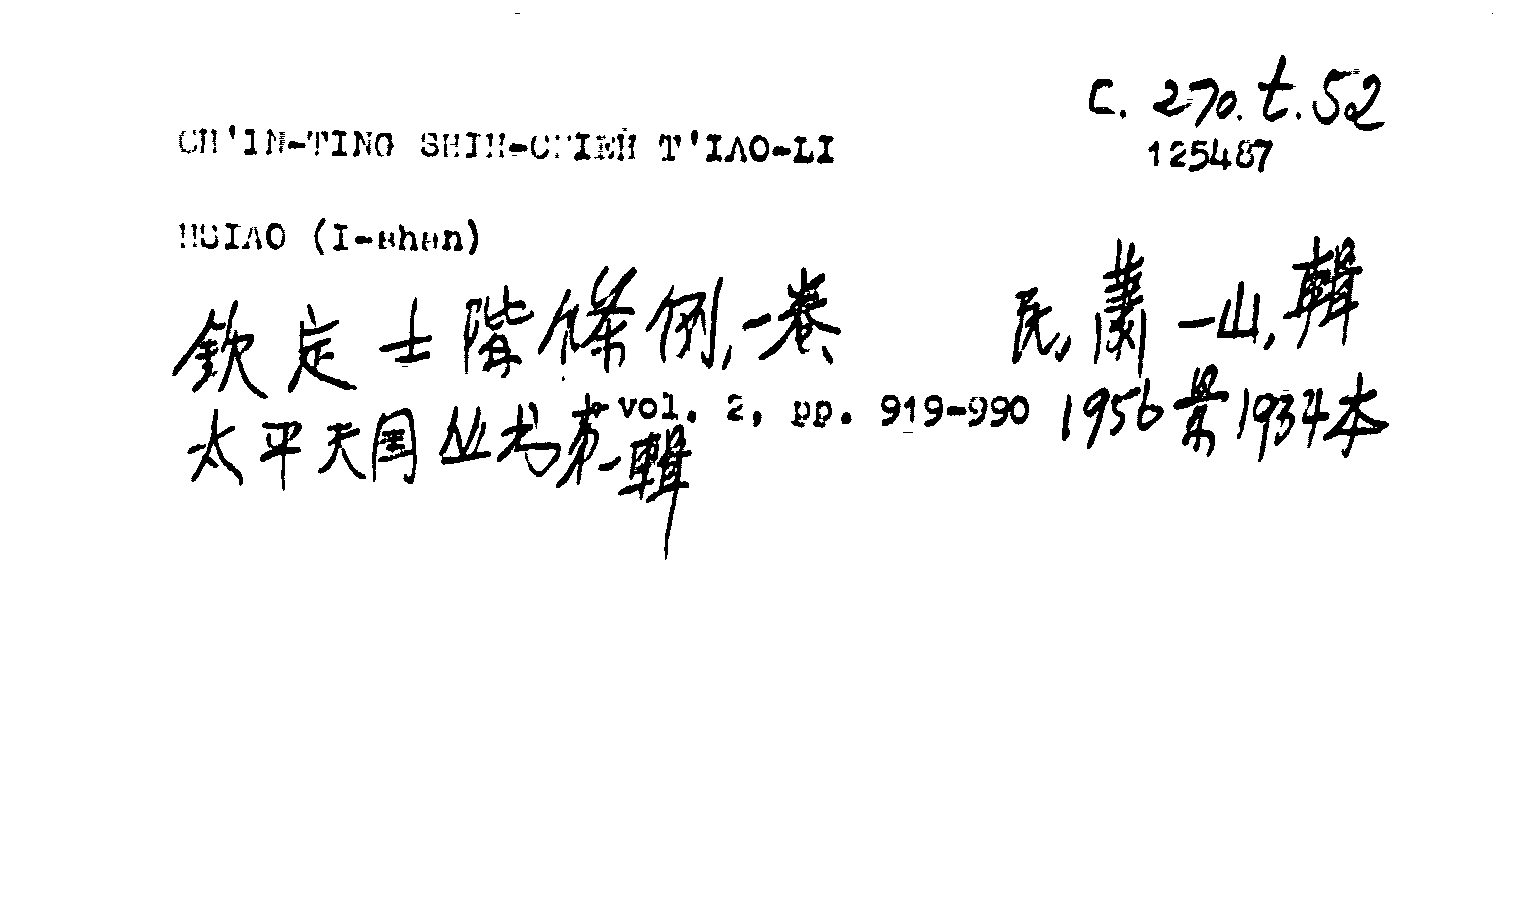 C. 270. t. 52
CH'IN-TING SHIH-CHIEH T'IAO-LI
125487
HSIAO (I-shan)
欽定士階條例,一卷 民,蕭一山,輯
太平天国丛书第一輯 vol. 2, pp. 919-990 1956景1934本